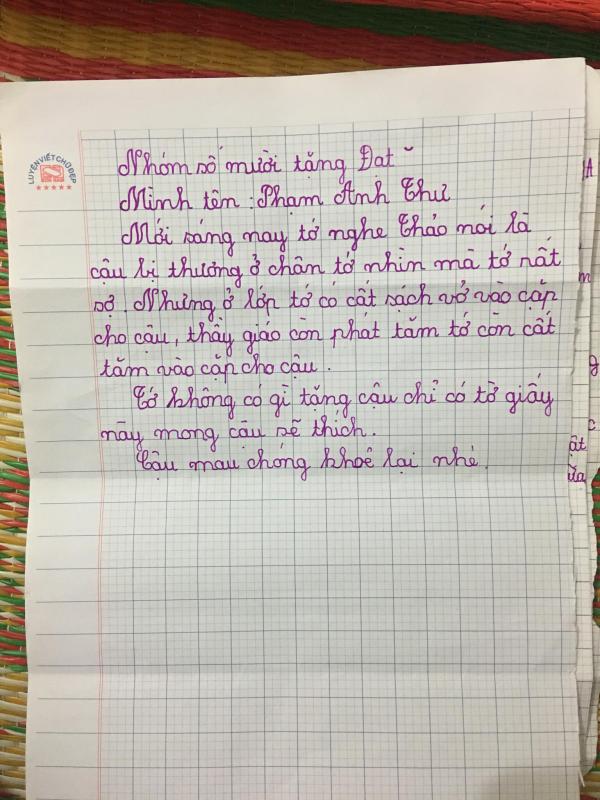 LUYỆN VIẾT CHỮ ĐẸP
Nhóm số mười tặng Đạt
Mình tên : Phạm Anh Thư
Mới sáng nay tớ nghe Thảo nói là
cậu bị thương ở chân tớ nhìn mà tớ rất
sợ. Nhưng ở lớp tớ có cất sách vở vào cặp
cho cậu, thầy giáo còn phát tăm tớ còn cất
tăm vào cặp cho cậu.
Tớ không có gì tặng cậu chỉ có tờ giấy
này mong cậu sẽ thích.
Cậu mau chóng khoẻ lại nhé.